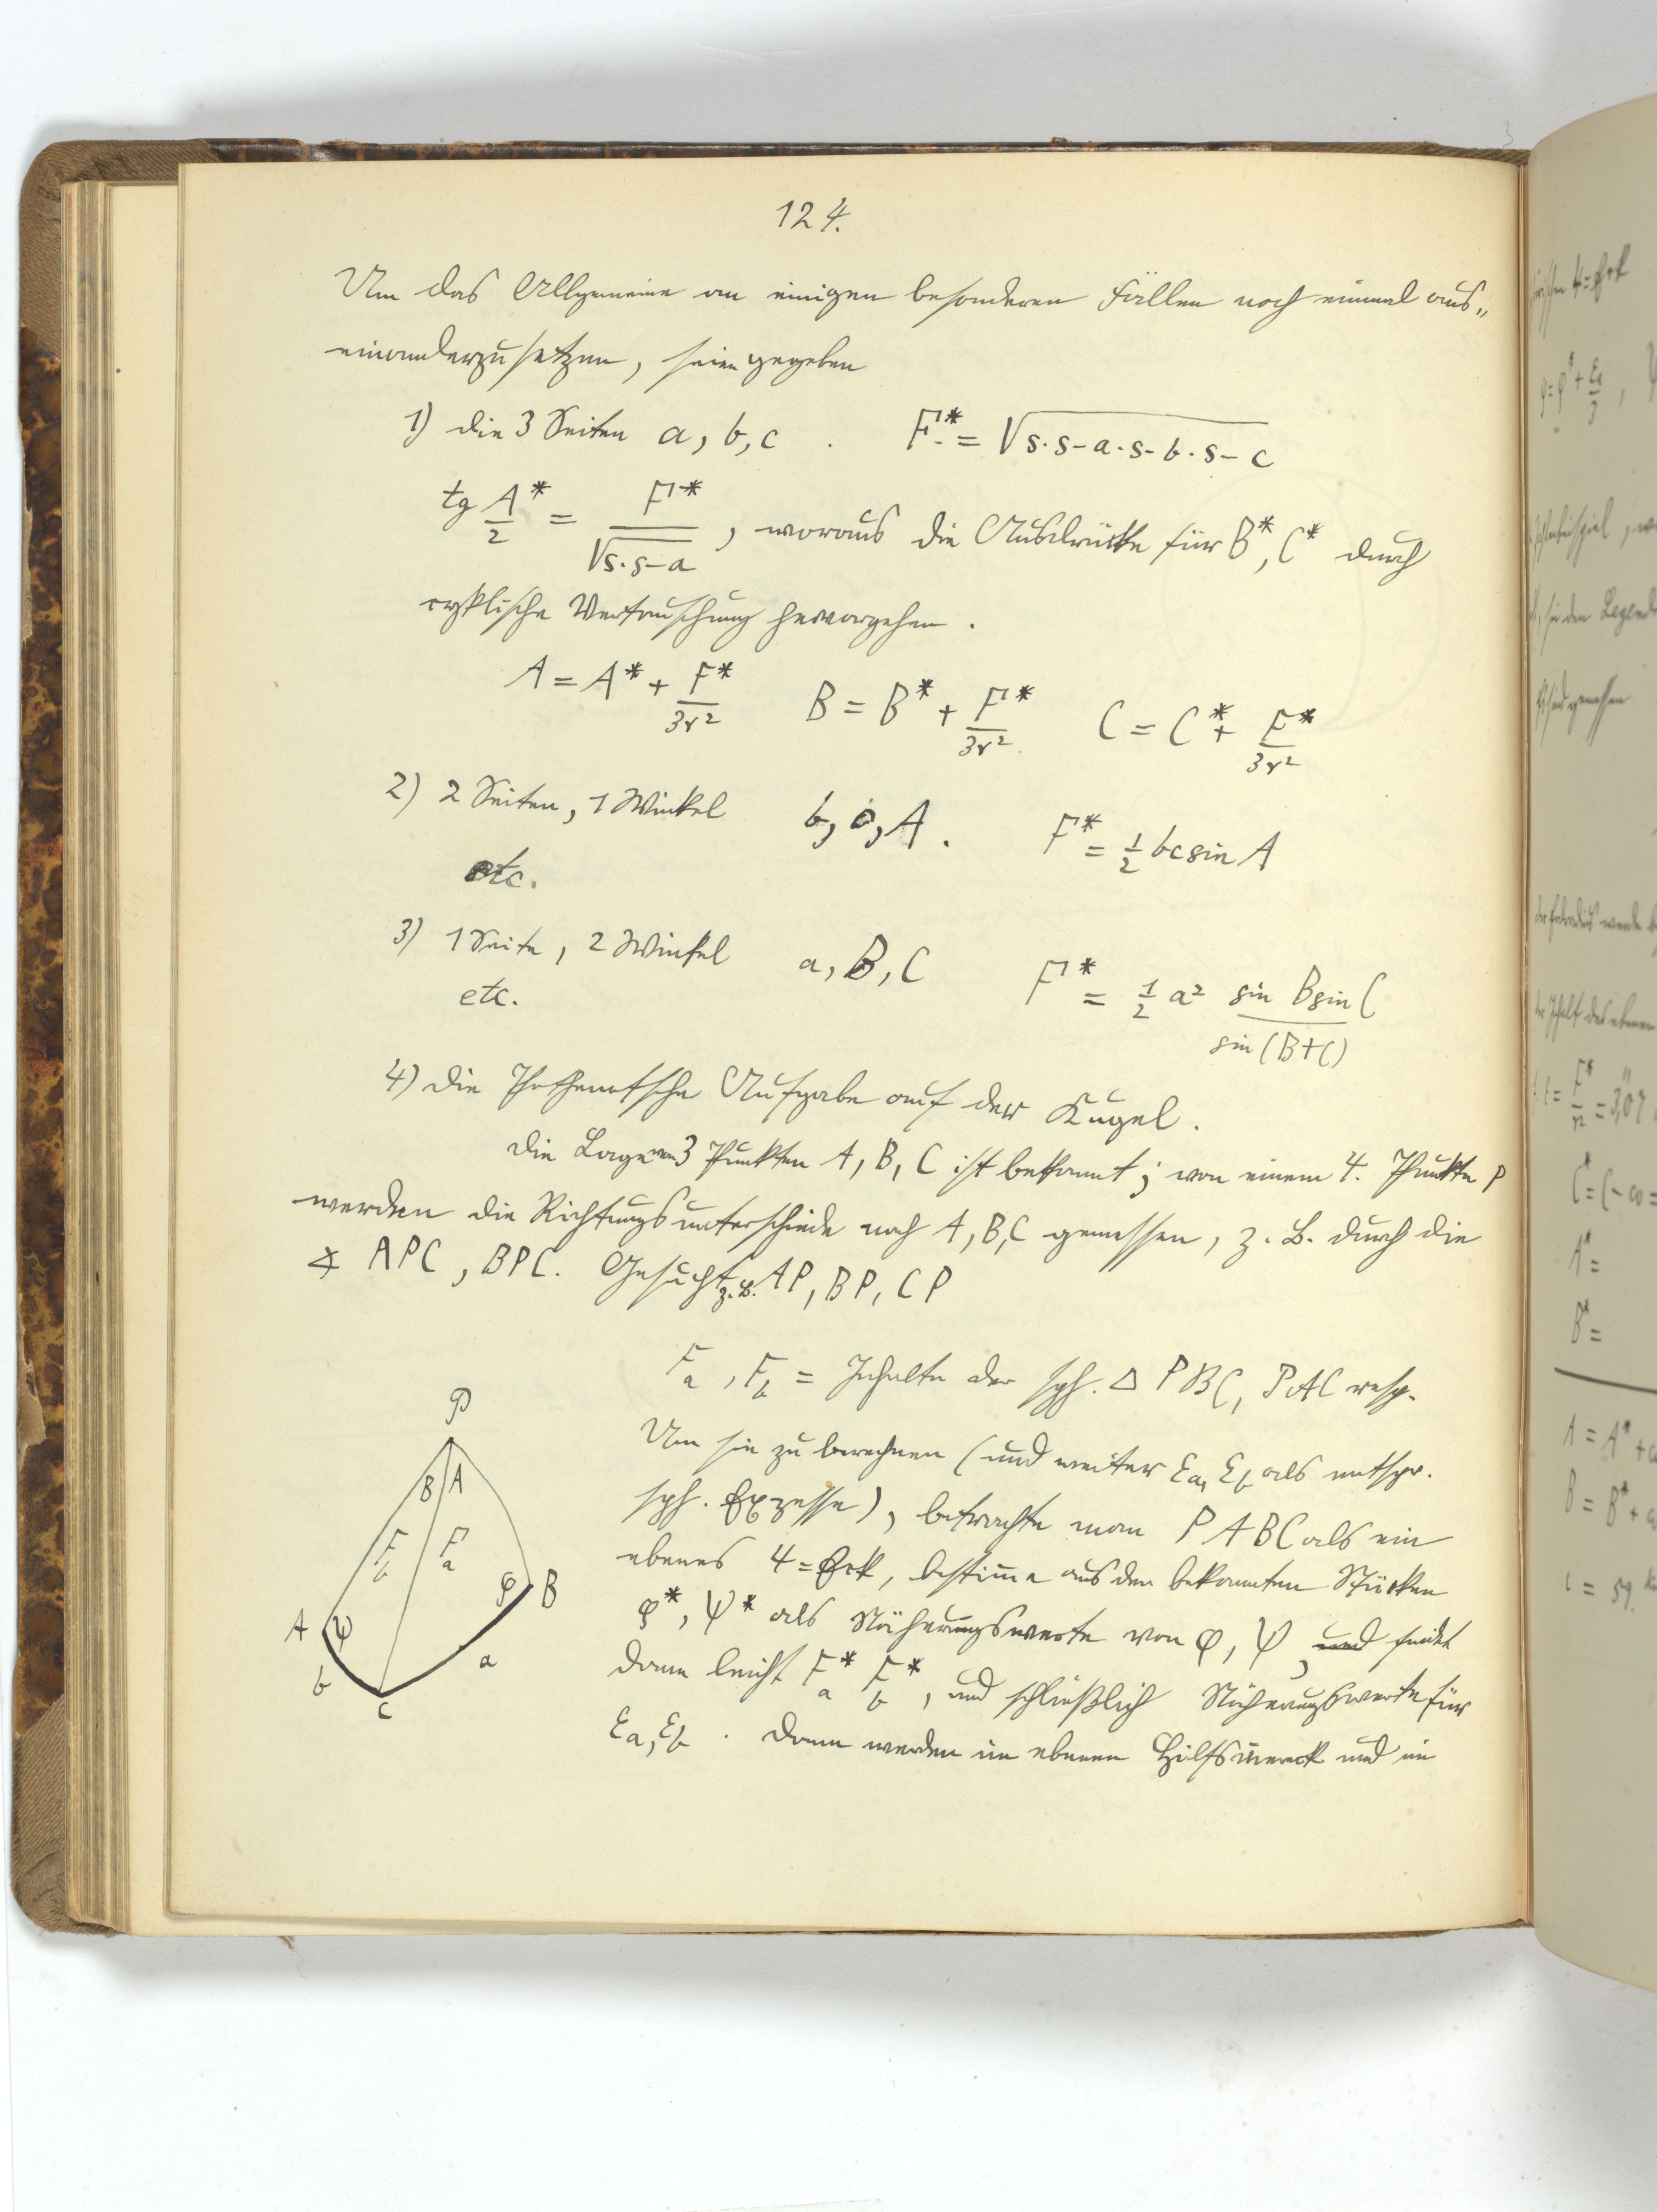 124.
Um das Allgemeine an einigen besonderen Fällen noch einmal aus„
einanderzusetzen, seien gegeben
1) die 3 Seiten a, b, c . F* = √s·s-a·s-b·s-c
tg A*/2 = F*/√s·s-a , woraus die Ausdrücke für B*, C* durch
cyklische Vertauschung hervorgehen.
A = A* + F*/3r² B = B* + F*/3r² C = C* + F*/3r²
2) 2 Seiten, 1 Winkel b, c, A. F* = ½ bc sin A
etc.
3) 1 Seite, 2 Winkel a, B, C F* = ½ a² sin B sin C / sin (B+C)
etc.
4) die Pothenotsche Aufgabe auf der Kugel.
Die Lage von 3 Punkten A, B, C ist bekannt; von einem 4. Punkte P
werden die Richtungsunterschiede nach A, B, C gemessen, z. B. durch die
∡ APC, BPC. Gesucht z. B. AP, BP, CP
F_a, F_b = Inhalte der sph. △ PBC, PAC resp.
Um sie zu berechnen (und weiter ε_a, ε_b als entspr.
sph. Exzesse), betrachte man PABC als ein
ebenes 4=Eck, bestimme aus den bekannten Stücken
φ*, ψ* als Näherungswerte von φ, ψ, und findet
dann leicht F_a* F_b*, und schließlich Näherungswerte für
ε_a, ε_b . Dann werden im ebenen Hülfsviereck und im
P
B A
F_b F_a
φ B
A ψ
b a
C